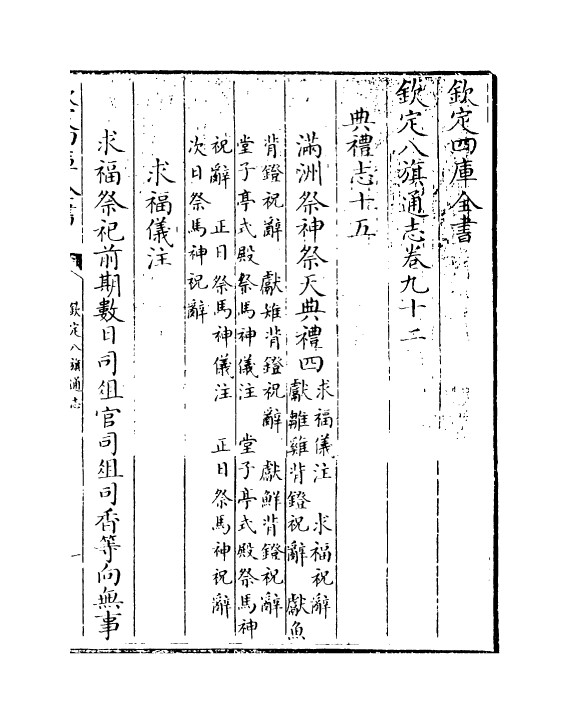 欽定四庫全書
欽定八旗通志卷九十二
典禮志十五
滿洲祭神祭天典禮四
求福儀注　求福祝辭
獻雛雞背鐙祝辭　獻魚
背鐙祝辭　獻雉背鐙祝辭　獻鮮背鐙祝辭
堂子亭式殿祭馬神儀注　堂子亭式殿祭馬神
祝辭　正日祭馬神儀注　正日祭馬神祝辭
次日祭馬神祝辭
求福儀注
求福祭祀前期數日司俎官司俎司香等向無事
欽定八旗通志
一